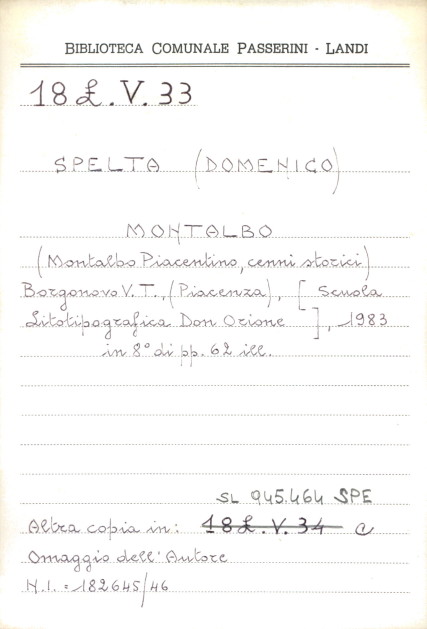 BIBLIOTECA COMUNALE PASSERINI - LANDI
18 £. V. 33
SPELTA (DOMENICO)
MONTALBO
(Montalbo Piacentino, cenni storici)
Borgonovo V. T., (Piacenza), [ Scuola
Litotipografica Don Orione ], 1983
in 8° di pp. 62 ill.
SL 945.464 SPE
Altra copia in: 18 £. V. 34
Omaggio dell'Autore
N.I. = 182645/46